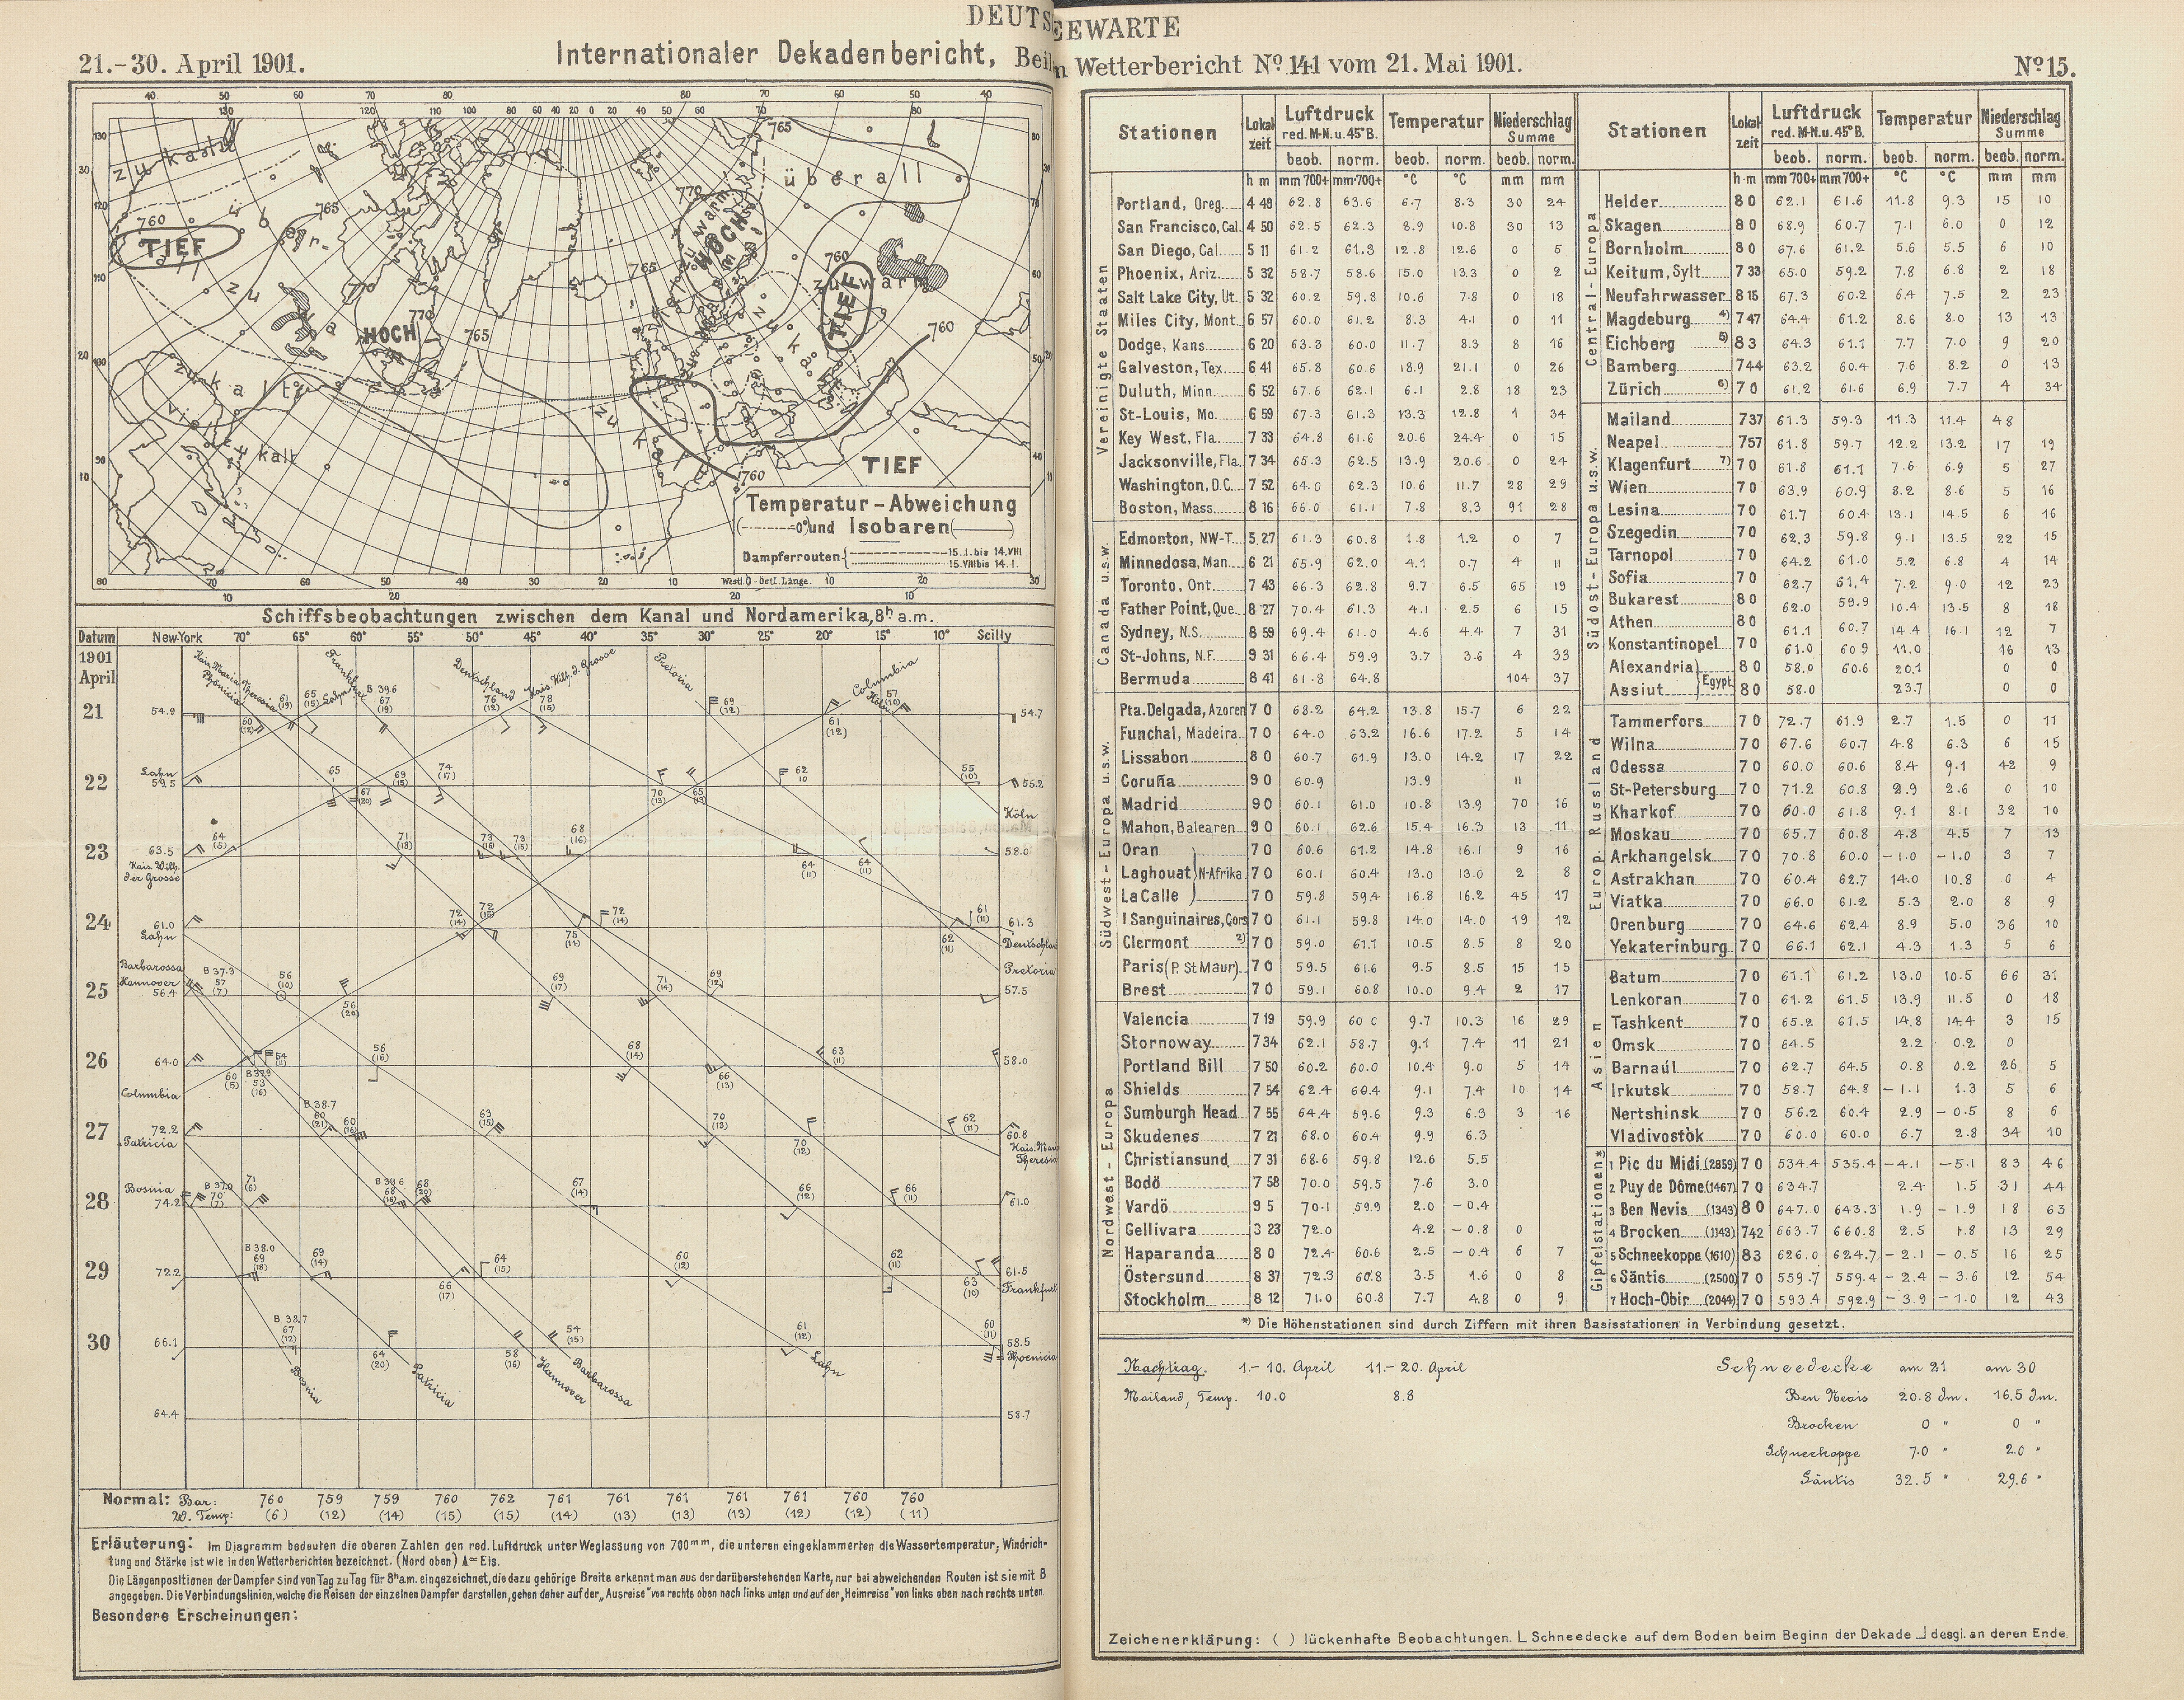 DEUTS EEWARTE
21.-30. April 1901.
Internationaler Dekadenbericht, Beil
n Wetterbericht No. 141 vom 21. Mai 1901.
No 15.
zu kalt
überall
760
TIEF
765
HOCH
770
765
zu kalt
viel zu kalt
765
770
HOCH
765
760
TIEF
zu warm
760
TIEF
760
Temperatur-Abweichung
(-·-·-=0°) und Isobaren (———)
Dampferrouten { 15. I. bis 14. VIII
15. VIII bis 14. I.
Westl. 0 - östl. Länge.
Schiffsbeobachtungen zwischen dem Kanal und Nordamerika, 8h a.m.
Datum New-York 70° 65° 60° 55° 50° 45° 40° 35° 30° 25° 20° 15° 10° Scilly
1901
April
Kais. Maria Theresia
Phönicia
Frankfurt
Lahn
Deutschland
Kais. Wilh. d. Grosse
Pretoria
Columbia
Köln
21 54.9 54.7
22 Lahn 59.5 55.2
Köln
23 63.5 58.0
Kais. Wilh.
der Grosse
24 61.0 61.3
Lahn
Deutschlan
Barbarossa
Hannover
Pretoria
25 56.4 57.5
26 64.0 58.0
Columbia
27 72.2 60.8
Patricia
Kais. Mari
Theresia
Bosnia
28 74.2 61.0
29 72.2 61.5
Frankfurt
30 66.1 58.5
Phoenicia
Bosnia
Patricia
Hannover
Barbarossa
Lahn
64.4 58.7
Normal: Bar: 760 759 759 760 762 761 761 761 761 761 760 760
W. Temp: (6) (12) (14) (15) (15) (14) (13) (13) (13) (12) (12) (11)
Erläuterung: Im Diagramm bedeuten die oberen Zahlen den red. Luftdruck unter Weglassung von 700mm, die unteren eingeklammerten die Wassertemperatur; Windrich-
tung und Stärke ist wie in den Wetterberichten bezeichnet. (Nord oben) ▲ = Eis.
Die Längenpositionen der Dampfer sind von Tag zu Tag für 8h a.m. eingezeichnet, die dazu gehörige Breite erkennt man aus der darüberstehenden Karte, nur bei abweichenden Routen ist sie mit B
angegeben. Die Verbindungslinien, welche die Reisen der einzelnen Dampfer darstellen, gehen daher auf der „Ausreise" von rechts oben nach links unten und auf der „Heimreise" von links oben nach rechts unten.
Besondere Erscheinungen:
Stationen Lokalzeit Luftdruck red. M-N. u. 45° B. Temperatur Niederschlag Summe
beob. norm. beob. norm. beob. norm.
h m mm 700+ mm 700+ °C °C mm mm
Vereinigte Staaten
Portland, Oreg. 4 49 62.8 63.6 6.7 8.3 30 24
San Francisco, Cal. 4 50 62.5 62.3 8.9 10.8 30 13
San Diego, Cal. 5 11 61.2 61.3 12.8 12.6 0 5
Phoenix, Ariz. 5 32 58.7 58.6 15.0 13.3 0 2
Salt Lake City, Ut. 5 32 60.2 59.8 10.6 7.8 0 18
Miles City, Mont. 6 57 60.0 61.2 8.3 4.1 0 11
Dodge, Kans. 6 20 63.3 60.0 11.7 8.3 8 16
Galveston, Tex. 6 41 65.8 60.6 18.9 21.1 0 26
Duluth, Minn. 6 52 67.6 62.1 6.1 2.8 18 23
St-Louis, Mo. 6 59 67.3 61.3 13.3 12.8 1 34
Key West, Fla. 7 33 64.8 61.6 20.6 24.4 0 15
Jacksonville, Fla. 7 34 65.3 62.5 13.9 20.6 0 24
Washington, D.C. 7 52 64.0 62.3 10.6 11.7 28 29
Boston, Mass. 8 16 66.0 61.1 7.8 8.3 91 28
Canada u.s.w.
Edmonton, NW-T. 5 27 61.3 60.8 1.8 1.2 0 7
Minnedosa, Man. 6 21 65.9 62.0 4.1 0.7 4 11
Toronto, Ont. 7 43 66.3 62.8 9.7 6.5 65 19
Father Point, Que. 8 27 70.4 61.3 4.1 2.5 6 15
Sydney, N.S. 8 59 69.4 61.0 4.6 4.4 7 31
St-Johns, N.F. 9 31 66.4 59.9 3.7 3.6 4 33
Bermuda 8 41 61.8 64.8 104 37
Südwest-Europa u.s.w.
Pta. Delgada, Azoren 7 0 68.2 64.2 13.8 15.7 6 22
Funchal, Madeira 7 0 64.0 63.2 16.6 17.2 5 14
Lissabon 8 0 60.7 61.9 13.0 14.2 17 22
Coruña 9 0 60.9 13.9 11
Madrid 9 0 60.1 61.0 10.8 13.9 70 16
Mahon, Balearen 9 0 60.1 62.6 15.4 16.3 13 11
Oran 7 0 60.6 61.2 14.8 16.1 9 16
Laghouat } N-Afrika 7 0 60.1 60.4 13.0 13.0 2 8
La Calle 7 0 59.8 59.4 16.8 16.2 45 17
I Sanguinaires, Cors 7 0 61.1 59.8 14.0 14.0 19 12
Clermont 2) 7 0 59.0 61.1 10.5 8.5 8 20
Paris (P. St Maur) 7 0 59.5 61.6 9.5 8.5 15 15
Brest 7 0 59.1 60.8 10.0 9.4 2 17
Nordwest-Europa
Valencia 7 19 59.9 60 0 9.7 10.3 16 29
Stornoway 7 34 62.1 58.7 9.1 7.4 11 21
Portland Bill 7 50 60.2 60.0 10.4 9.0 5 14
Shields 7 54 62.4 60.4 9.1 7.4 10 14
Sumburgh Head 7 55 64.4 59.6 9.3 6.3 3 16
Skudenes 7 21 68.0 60.4 9.9 6.3
Christiansund 7 31 68.6 59.8 12.6 5.5
Bodö 7 58 70.0 59.5 7.6 3.0
Vardö 9 5 70.1 59.9 2.0 -0.4
Gellivara 3 23 72.0 4.2 -0.8 0
Haparanda 8 0 72.4 60.6 2.5 -0.4 6 7
Östersund 8 37 72.3 60.8 3.5 1.6 0 8
Stockholm 8 12 71.0 60.8 7.7 4.8 0 9
Stationen Lokalzeit Luftdruck red. M-N. u. 45° B. Temperatur Niederschlag Summe
beob. norm. beob. norm. beob. norm.
h m mm 700+ mm 700+ °C °C mm mm
Central-Europa
Helder 8 0 62.1 61.6 11.8 9.3 15 10
Skagen 8 0 68.9 60.7 7.1 6.0 0 12
Bornholm 8 0 67.6 61.2 5.6 5.5 6 10
Keitum, Sylt 7 33 65.0 59.2 7.8 6.8 2 18
Neufahrwasser 8 15 67.3 60.2 6.4 7.5 2 23
Magdeburg 4) 7 47 64.4 61.2 8.6 8.0 13 13
Eichberg 5) 8 3 64.3 61.1 7.7 7.0 9 20
Bamberg 7 44 63.2 60.4 7.6 8.2 0 13
Zürich 6) 7 0 61.2 61.6 6.9 7.7 4 34
Südost-Europa u.s.w.
Mailand 7 37 61.3 59.3 11.3 11.4 48
Neapel 7 57 61.8 59.7 12.2 13.2 17 19
Klagenfurt 7) 7 0 61.8 61.1 7.6 6.9 5 27
Wien 7 0 63.9 60.9 8.2 8.6 5 16
Lesina 7 0 61.7 60.4 13.1 14.5 6 16
Szegedin 7 0 62.3 59.8 9.1 13.5 22 15
Tarnopol 7 0 64.2 61.0 5.2 6.8 4 14
Sofia 7 0 62.7 61.4 7.2 9.0 12 23
Bukarest 8 0 62.0 59.9 10.4 13.5 8 18
Athen 8 0 61.1 60.7 14.4 16.1 12 7
Konstantinopel 7 0 61.0 60.9 11.0 16 13
Alexandria } Egypt 8 0 58.0 60.6 20.1 0 0
Assiut 8 0 58.0 23.7 0 0
Europ. Russland
Tammerfors 7 0 72.7 61.9 2.7 1.5 0 11
Wilna 7 0 67.6 60.7 4.8 6.3 6 15
Odessa 7 0 60.0 60.6 8.4 9.1 42 9
St-Petersburg 7 0 71.2 60.8 2.9 2.6 0 10
Kharkof 7 0 60.0 61.8 9.1 8.1 32 10
Moskau 7 0 65.7 60.8 4.8 4.5 7 13
Arkhangelsk 7 0 70.8 60.0 -1.0 -1.0 3 7
Astrakhan 7 0 60.4 62.7 14.0 10.8 0 4
Viatka 7 0 66.0 61.2 5.3 2.0 8 9
Orenburg 7 0 64.6 62.4 8.9 5.0 36 10
Yekaterinburg 7 0 66.1 62.1 4.3 1.3 5 6
Asien
Batum 7 0 61.1 61.2 13.0 10.5 66 31
Lenkoran 7 0 61.2 61.5 13.9 11.5 0 18
Tashkent 7 0 65.2 61.5 14.8 14.4 3 15
Omsk 7 0 64.5 2.2 0.2 0
Barnaúl 7 0 62.7 64.5 0.8 0.2 26 5
Irkutsk 7 0 58.7 64.8 -1.1 1.3 5 6
Nertshinsk 7 0 56.2 60.4 2.9 -0.5 8 6
Vladivostòk 7 0 60.0 60.0 6.7 2.8 34 10
Gipfelstationen*
1 Pic du Midi (2859) 7 0 534.4 535.4 -4.1 -5.1 83 46
2 Puy de Dôme (1467) 7 0 634.7 2.4 1.5 31 44
3 Ben Nevis (1343) 8 0 647.0 643.3 1.9 -1.9 18 63
4 Brocken (1143) 7 42 663.7 660.8 2.5 1.8 13 29
5 Schneekoppe (1610) 8 3 626.0 624.7 -2.1 -0.5 16 25
6 Säntis (2500) 7 0 559.7 559.4 -2.4 -3.6 12 54
7 Hoch-Obir (2044) 7 0 593.4 592.9 -3.9 -1.0 12 43
*) Die Höhenstationen sind durch Ziffern mit ihren Basisstationen in Verbindung gesetzt.
Nachtrag. 1.-10. April 11.-20. April
Mailand, Temp. 10.0 8.8
Schneedecke am 21 am 30
Ben Nevis 20.8 dm. 16.5 dm.
Brocken 0 " 0 "
Schneekoppe 7.0 " 2.0 "
Säntis 32.5 " 29.6 "
Zeichenerklärung: ( ) lückenhafte Beobachtungen. ∟ Schneedecke auf dem Boden beim Beginn der Dekade ⅃ desgl. an deren Ende